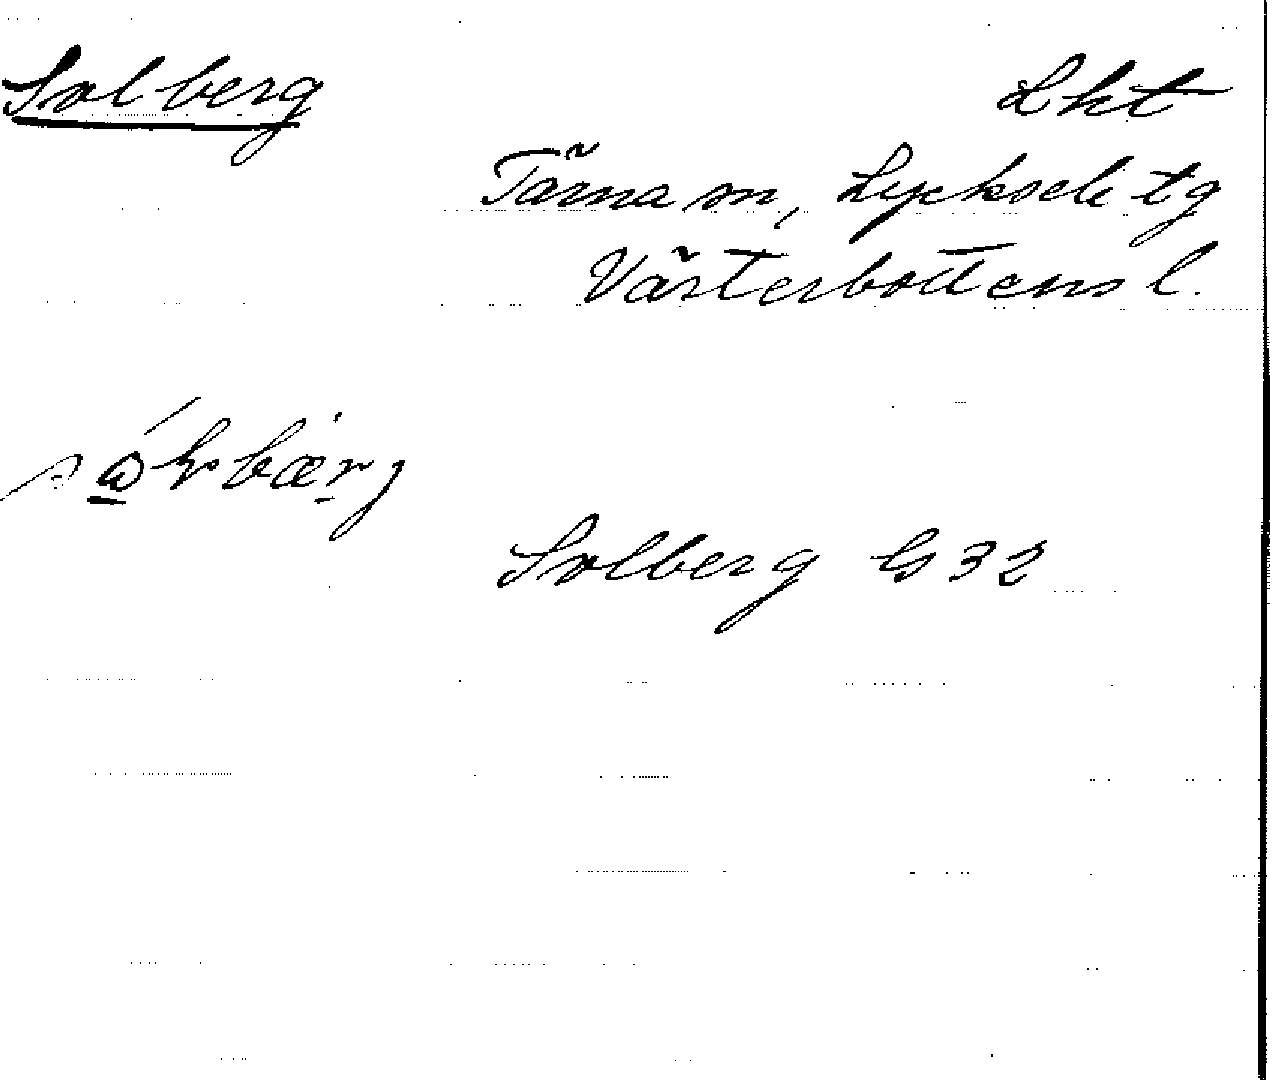 Solberg
Lht
Tärna sn, Lycksele tg
Västerbottens l.
Solberg G 32